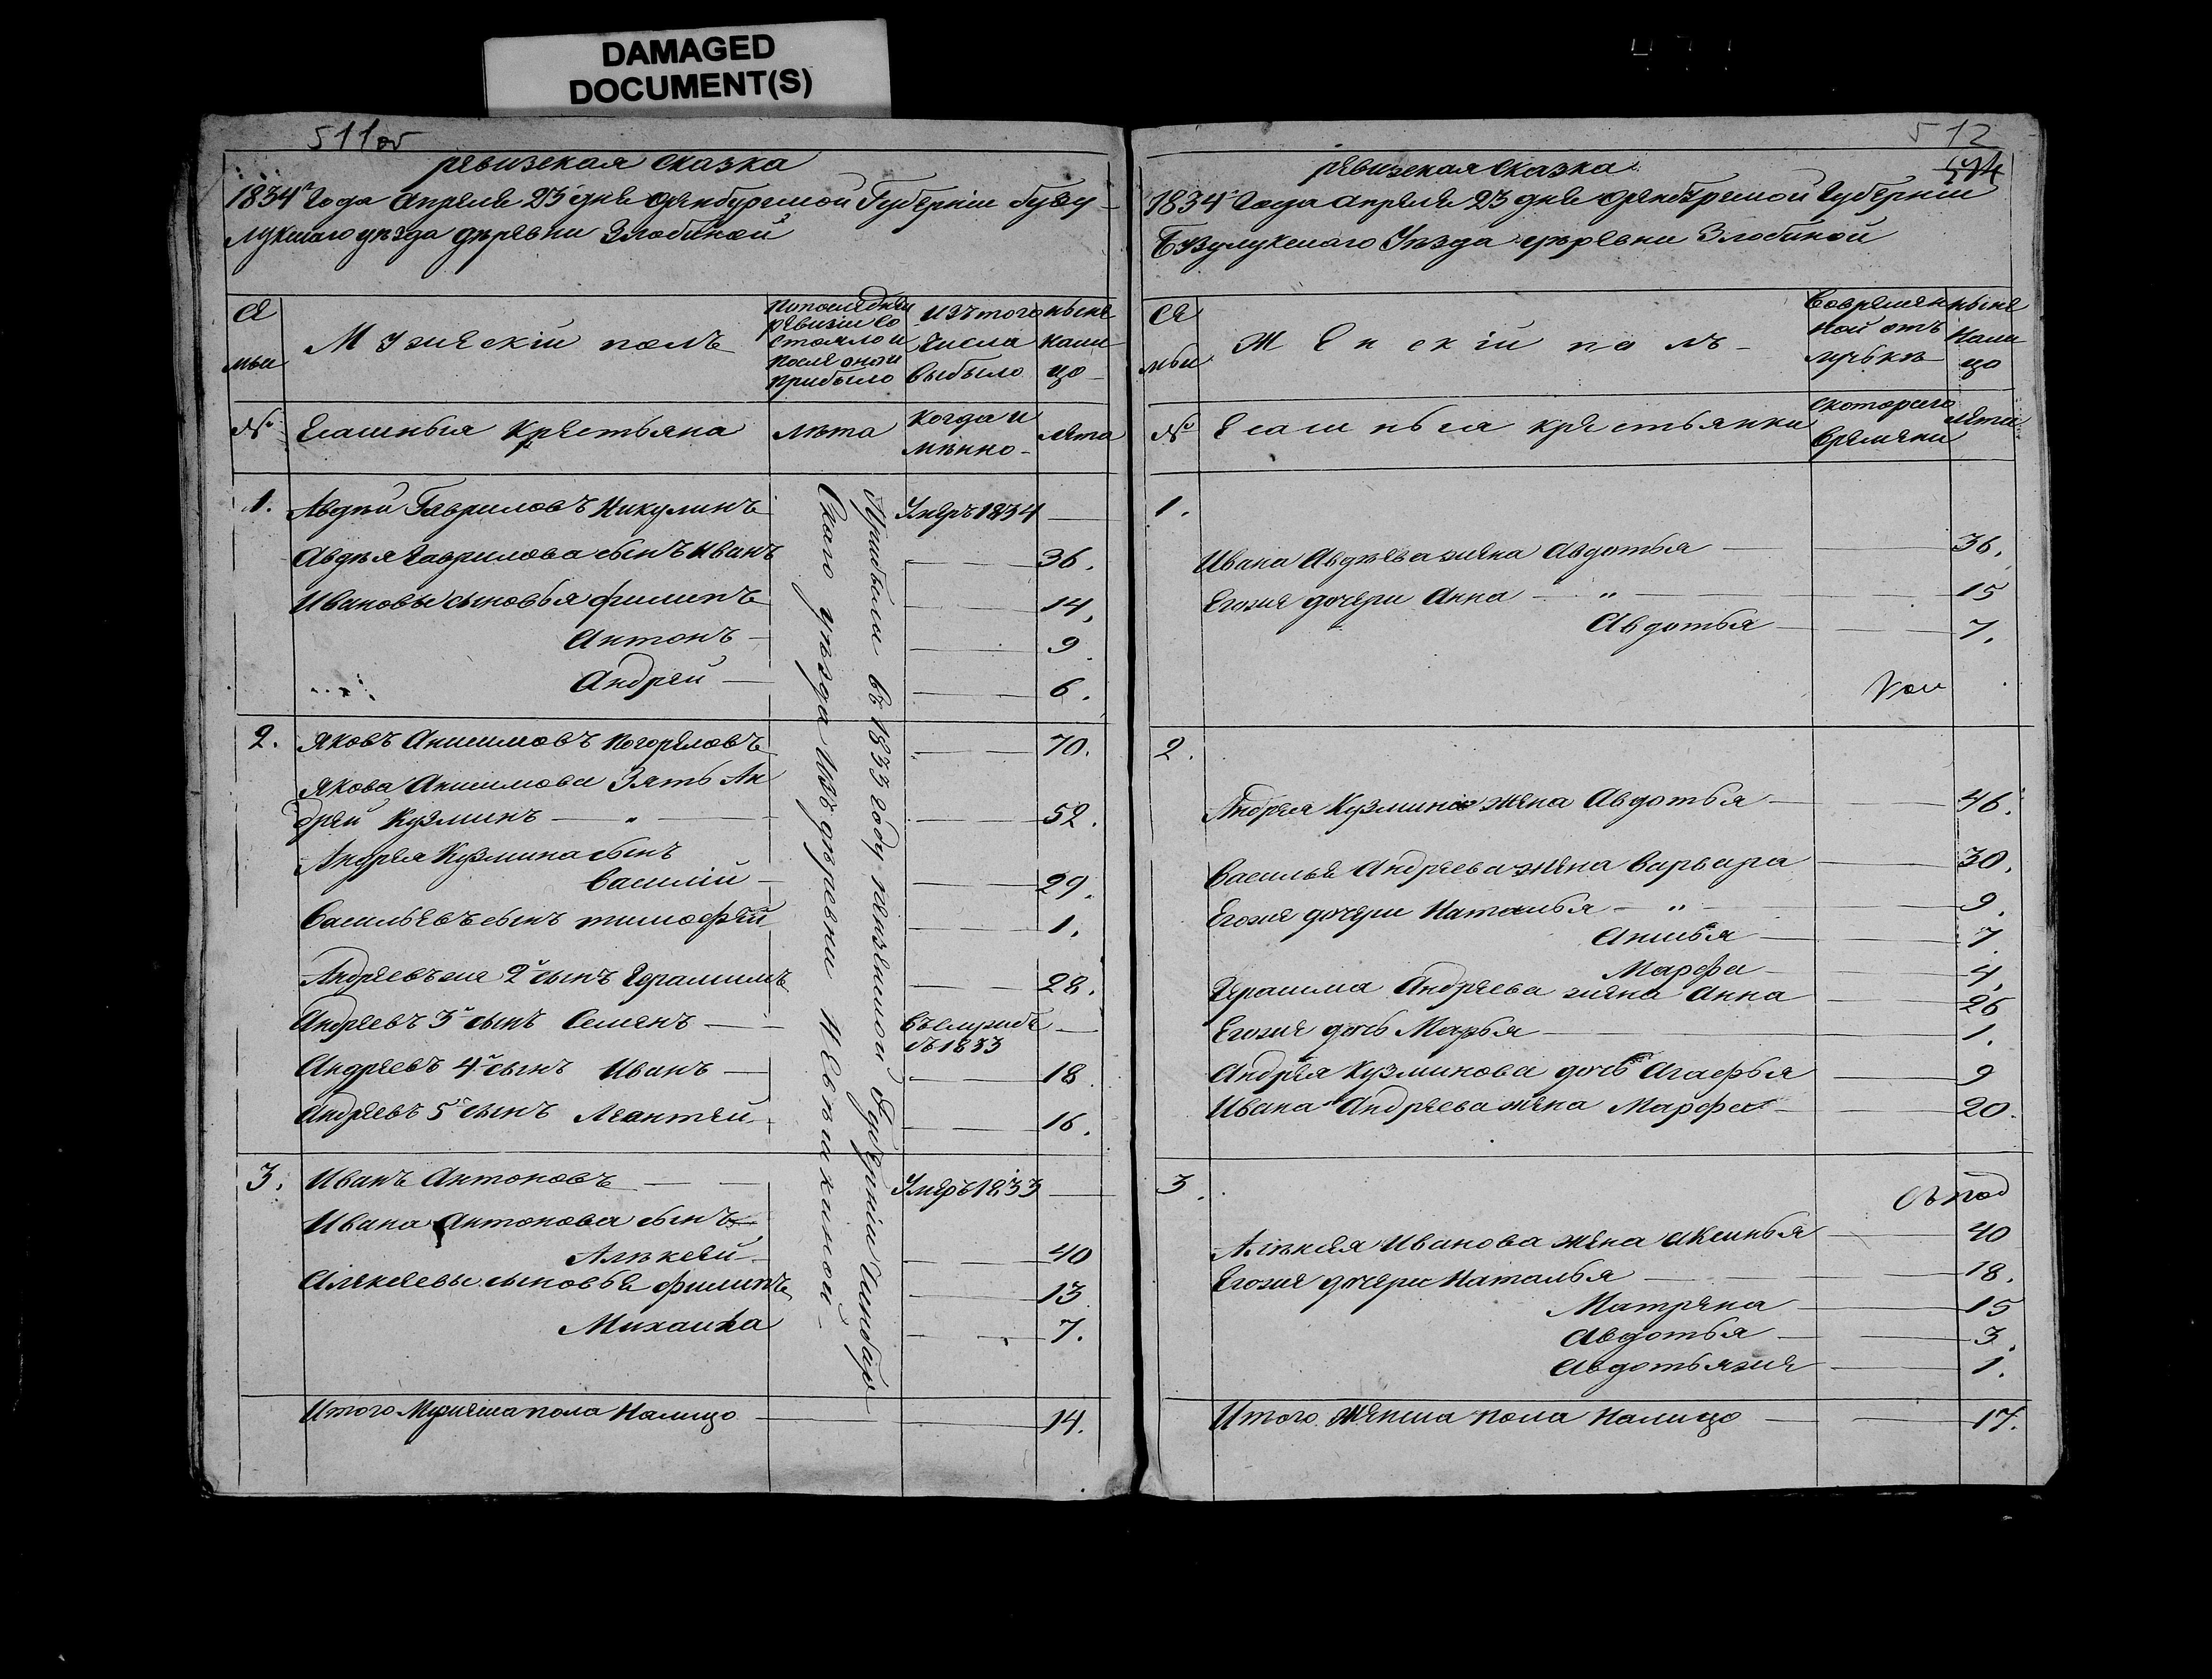 DAMAGED
DOCUMENT(S)
511об
ревизская сказка
1834го года апреля 23 дня оренбурской Губернiи бузу
лукскаго уезда деревни Злобиной
Се
мьи
Мужескiй полъ
по последней
ревизiи со
стояло и
после оной
прибыло
изъ того
числа
выбыло
ныне
нали
цо
№
Ясашныя крестьяна
лета
когда и
мянно
лета
1. Авдей Гавриловъ Никулинъ Умеръ 1834
Авдея Гаврилова сынъ Иванъ 36.
Ивановы сыновья филипъ 14.
Антонъ 9
Андрей 6.
2. Яковъ Анисимовъ Погореловъ 70.
Якова Анисимова Зять Ан
дрей Кузминъ 52.
Андрея Кузмина сынъ
Василiй 29.
Васильевъ сынъ тимофей 1.
Андреевъ же 2й сынъ Герасимъ 28.
Андреевъ 3й сынъ Семенъ
въ 1833
Андреевъ 4й сынъ Иванъ 18
Андреевъ 5й сынъ Леонтей 16.
3. Иванъ Антоновъ Умеръ 1833
Ивана Антонова сынъ
Алексей 40
Алексеевы сыновья филипъ 13
Михаила 7.
Итого Мужеска пола Налицо 14.
Прибыли въ 1833 году пензенской Губернiи Инсар
скаго уезда изъ деревни
512
ревизская сказка
1834го года апреля 23 дня оренбурской Губернiи
Бузулукскаго Уезда деревни Злобиной
Се
мьи
Женскiй полъ
Во времян
ной отъ
лучьке
ныне
нали
цо
№
Ясашныя крестьянки
с котораго
времяни
лета
1.
Ивана Авдеева жена Авдотья 36.
Егоже дочери Анна " 15
Авдотья 7.
2.
Андрея Кузмина жена Авдотья 46.
Василья Андреева жена Варвара 30.
Егоже дочери Наталья " 9.
Анисья 7
Марфа 4
Герасима Андреева жена Анна 26
Егоже дочь Марья 1.
Андрея Кузминова дочь Агафья 9
Ивана Андреева жена Марфа 20.
3.
Алексея Иванова жена Аксинья 40
Егоже дочери Наталья 18.
Матрена 15
Авдотья 3.
Авдотья же 1.
Итого Женска пола Налицо 17.